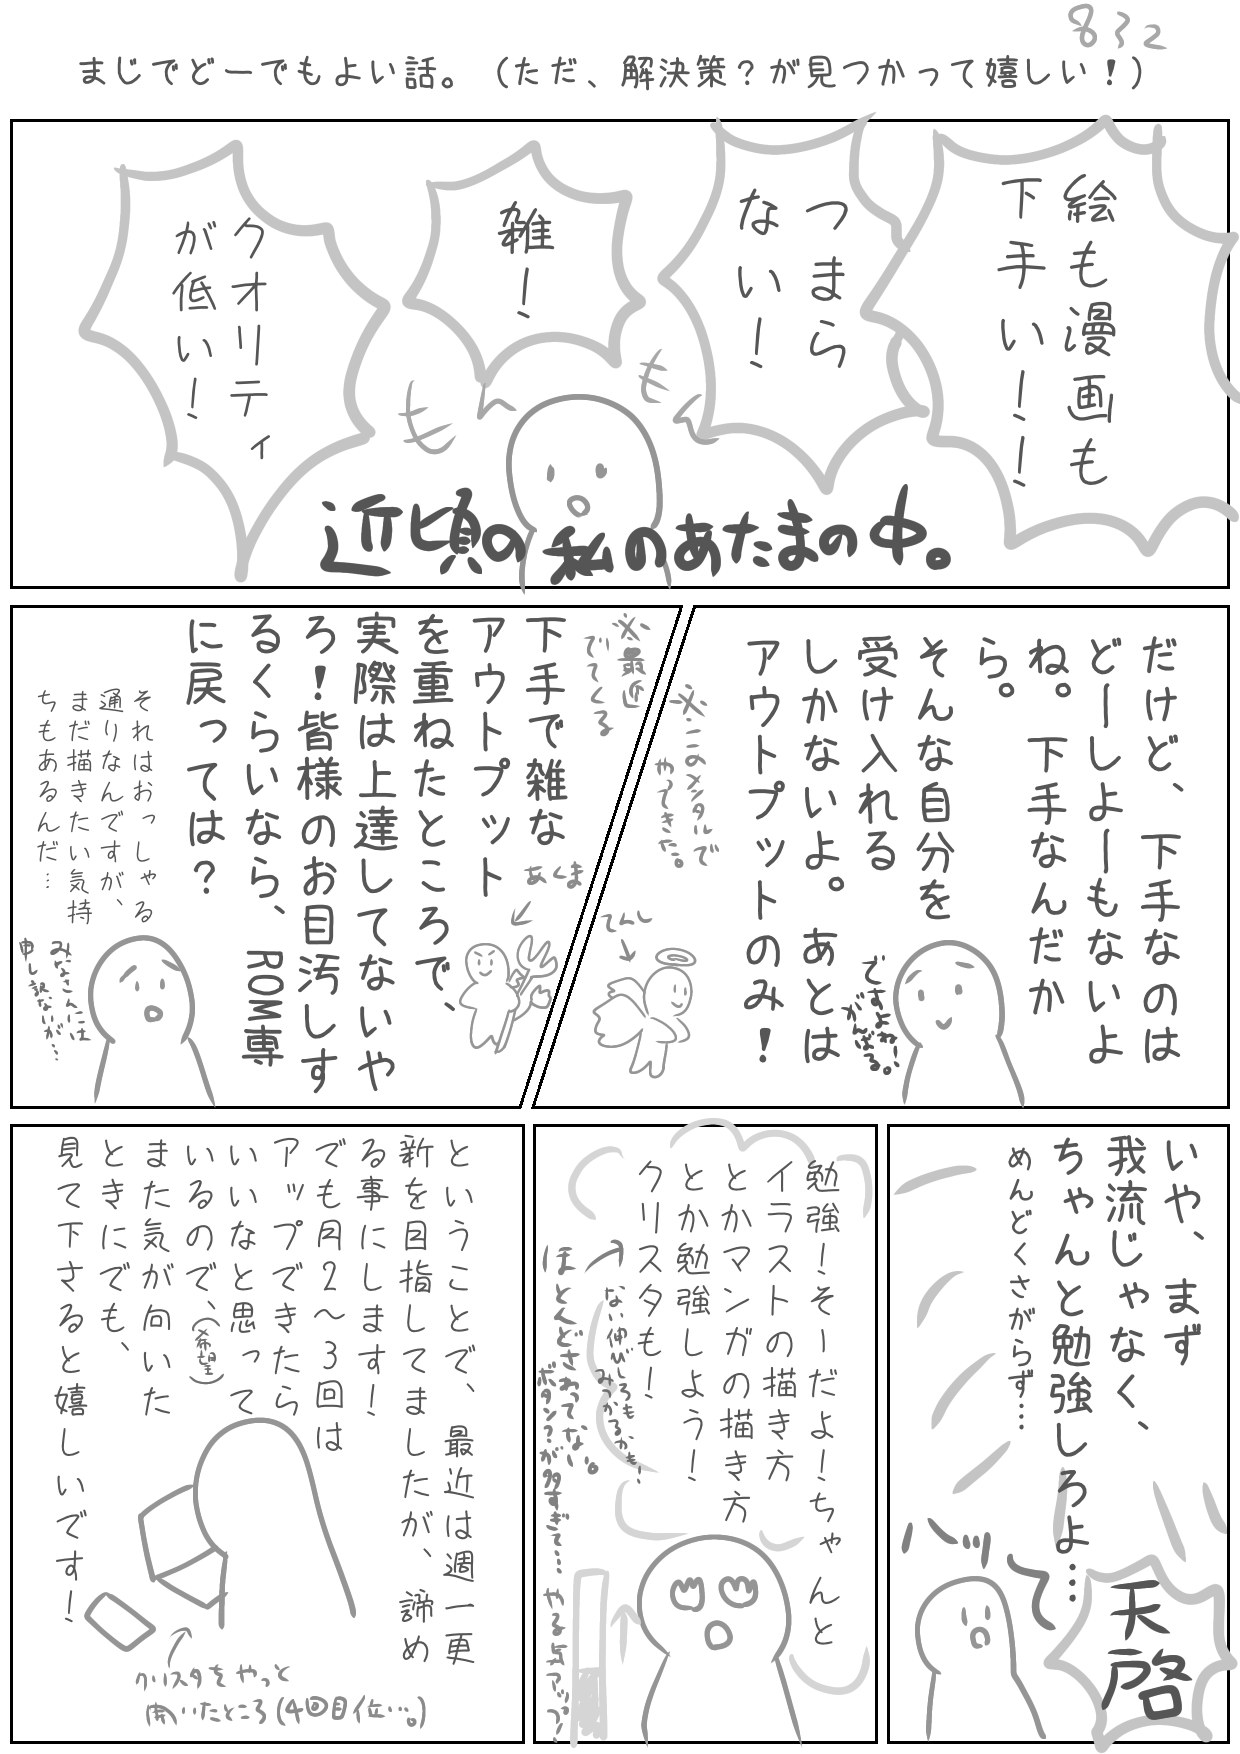 832
まじでどーでもよい話。（ただ、解決策？が見つかって嬉しい！）
絵も漫画も
下手い！！
つまら
ない！
雑！
クオリティ
が低い！
もも
近頃の私のあたまの中。
だけど、下手なのは
どーしよーもないよ
ね。下手なんだか
ら。
そんな自分を
受け入れる
しかないよ。あとは
アウトプットのみ！
ですよね！
がんばる。
※ここのメンタルで
やってきた。
てんし
※最近
でてくる
下手で雑な
アウトプット
を重ねたところで、
実際は上達してないや
ろ！皆様のお目汚しす
るくらいなら、ROM専
に戻っては？
あくま
それはおっしゃる
通りなんですが、
まだ描きたい気持
ちもあるんだ…
みなさんには
申し訳ないが…
いや、まず
我流じゃなく、
ちゃんと勉強しろよ…
めんどくさがらず…
ハッ
て
天啓
勉強！そーだよ！ちゃんと
イラストの描き方
とかマンガの描き方
とか勉強しよう！
クリスタも！
ない伸びしろも
みつかるかも！
ほとんどさわってない。
ボタン？が多すぎて…
やる気アップ！
ということで、最近は週一更
新を目指してましたが、諦め
る事にします！
でも月2〜3回は
アップできたら
いいなと思って
いるので、（希望）
また気が向いた
ときにでも、
見て下さると嬉しいです！
クリスタをやっと
開いたところ(4回目位…。)